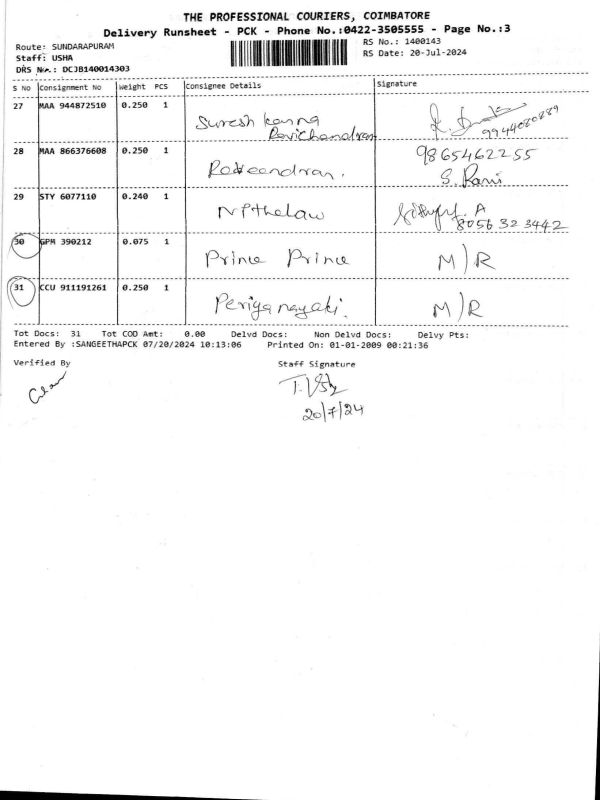 THE PROFESSIONAL COURIERS, COIMBATORE
Delivery Runsheet - PCK - Phone No.:0422-3505555 - Page No.:3
Route: SUNDARAPURAM
RS No.: 1400143
Staff: USHA
RS Date: 20-Jul-2024
DRS No.: DCJB140014303
S No Consignment No Weight PCS Consignee Details Signature
27 MAA 944872510 0.250 1
Suresh kanna
Ravichandran
9944080889
28 MAA 866376608 0.250 1
9865462255
Raveendran.
S. Rani
29 STY 6077110 0.240 1
A
8056323442
30 GPM 390212 0.075 1
Prince Prince M/R
31 CCU 911191261 0.250 1
Periyanayaki. M/R
Tot Docs: 31 Tot COD Amt: 0.00 Delvd Docs: Non Delvd Docs: Delvy Pts:
Entered By :SANGEETHAPCK 07/20/2024 10:13:06 Printed On: 01-01-2009 00:21:36
Verified By Staff Signature
20/7/24